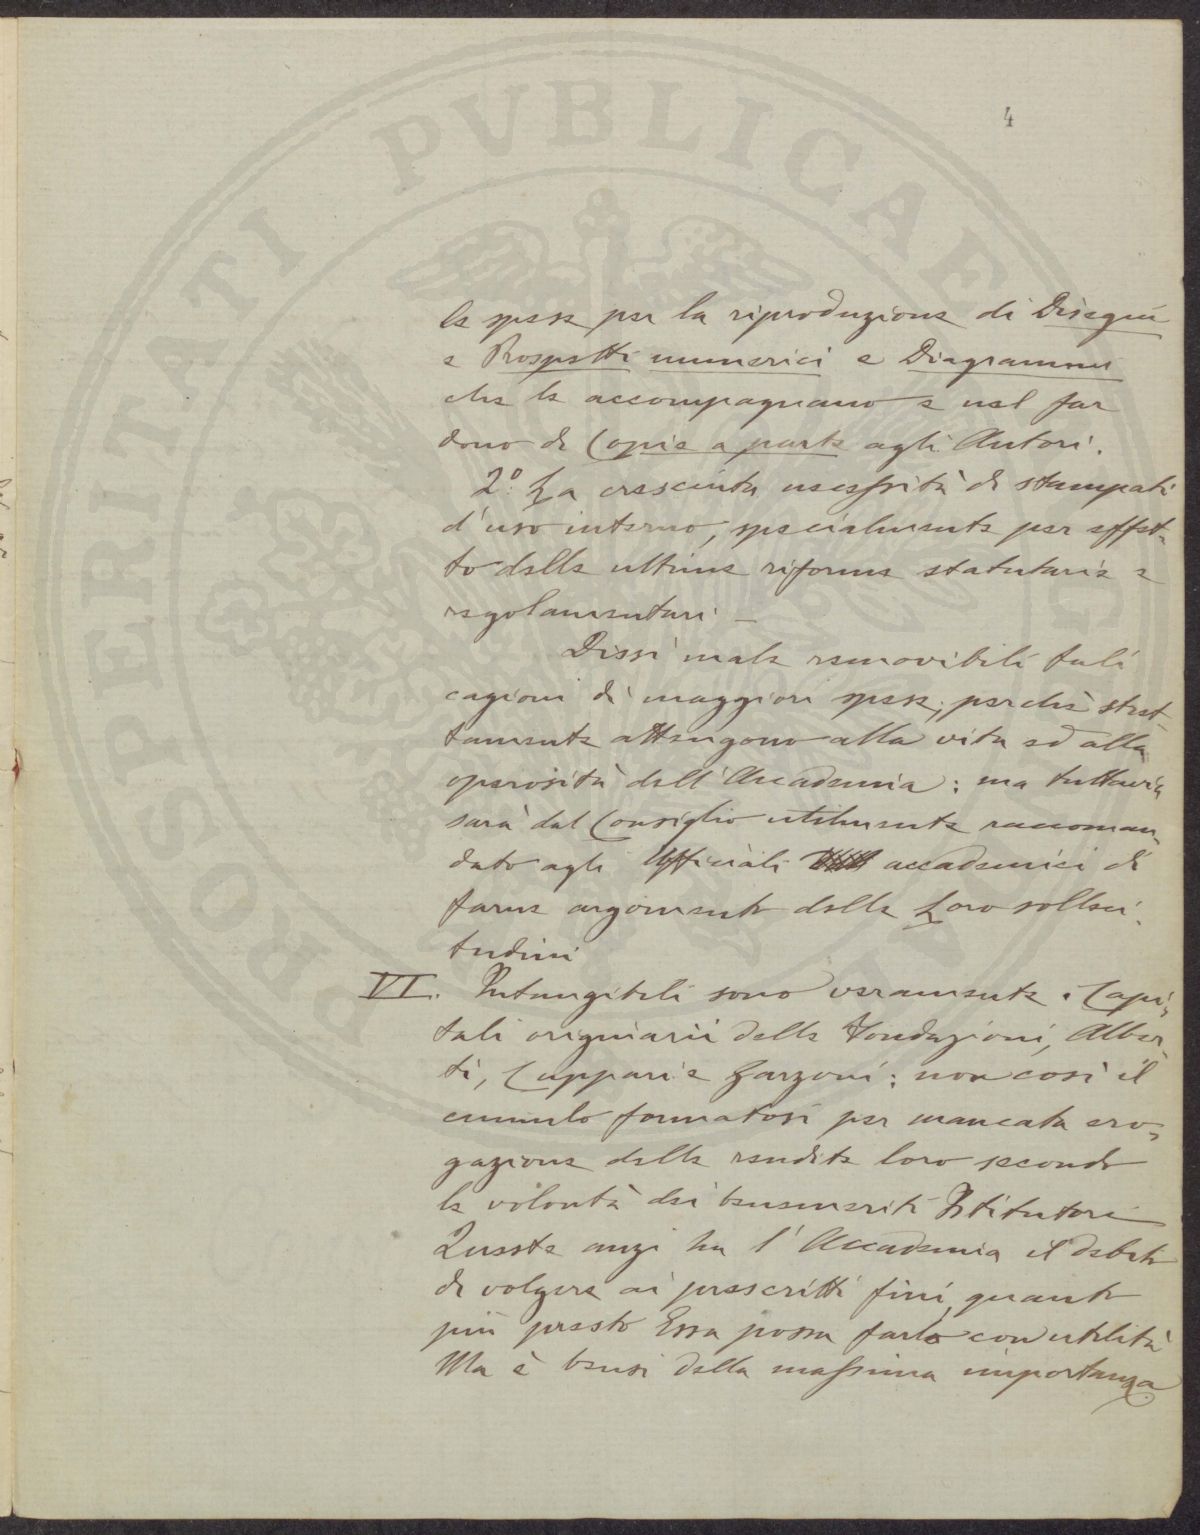 4
PROSPERITATI PVBLICAE
le spese per la riproduzione di Disegni
e Prospetti numerici e Diagrammi
che le accompagnano e nel far
dono di Copie a parte agli Autori.
2º. La cresciuta necessità di stampati
d'uso interno, specialmente per effet-
to delle ultime riforme statutarie e
regolamentari —
Dissi male removibili tali
cagioni di maggiori spese, perchè stret-
tamente attengono alla vita ed alla
operosità dell'Accademia; ma tuttavia
sarà dal Consiglio utilmente raccoman-
dato agli Ufficiali accademici di
farne argomento delle Loro solleci-
tudini
VI. Intangibili sono veramente i Capi-
tali originarii delle Fondazioni, Alber-
ti, Cuppari e Garzoni; non così il
cumulo formatosi per mancata ero-
gazione delle rendite loro secondo
le volontà dei benemeriti Istitutori
Queste anzi ha l'Accademia il debito
di volgere ai prescritti fini, quanto
più presto Essa possa farlo con utilità
Ma è bensi della massima importanza